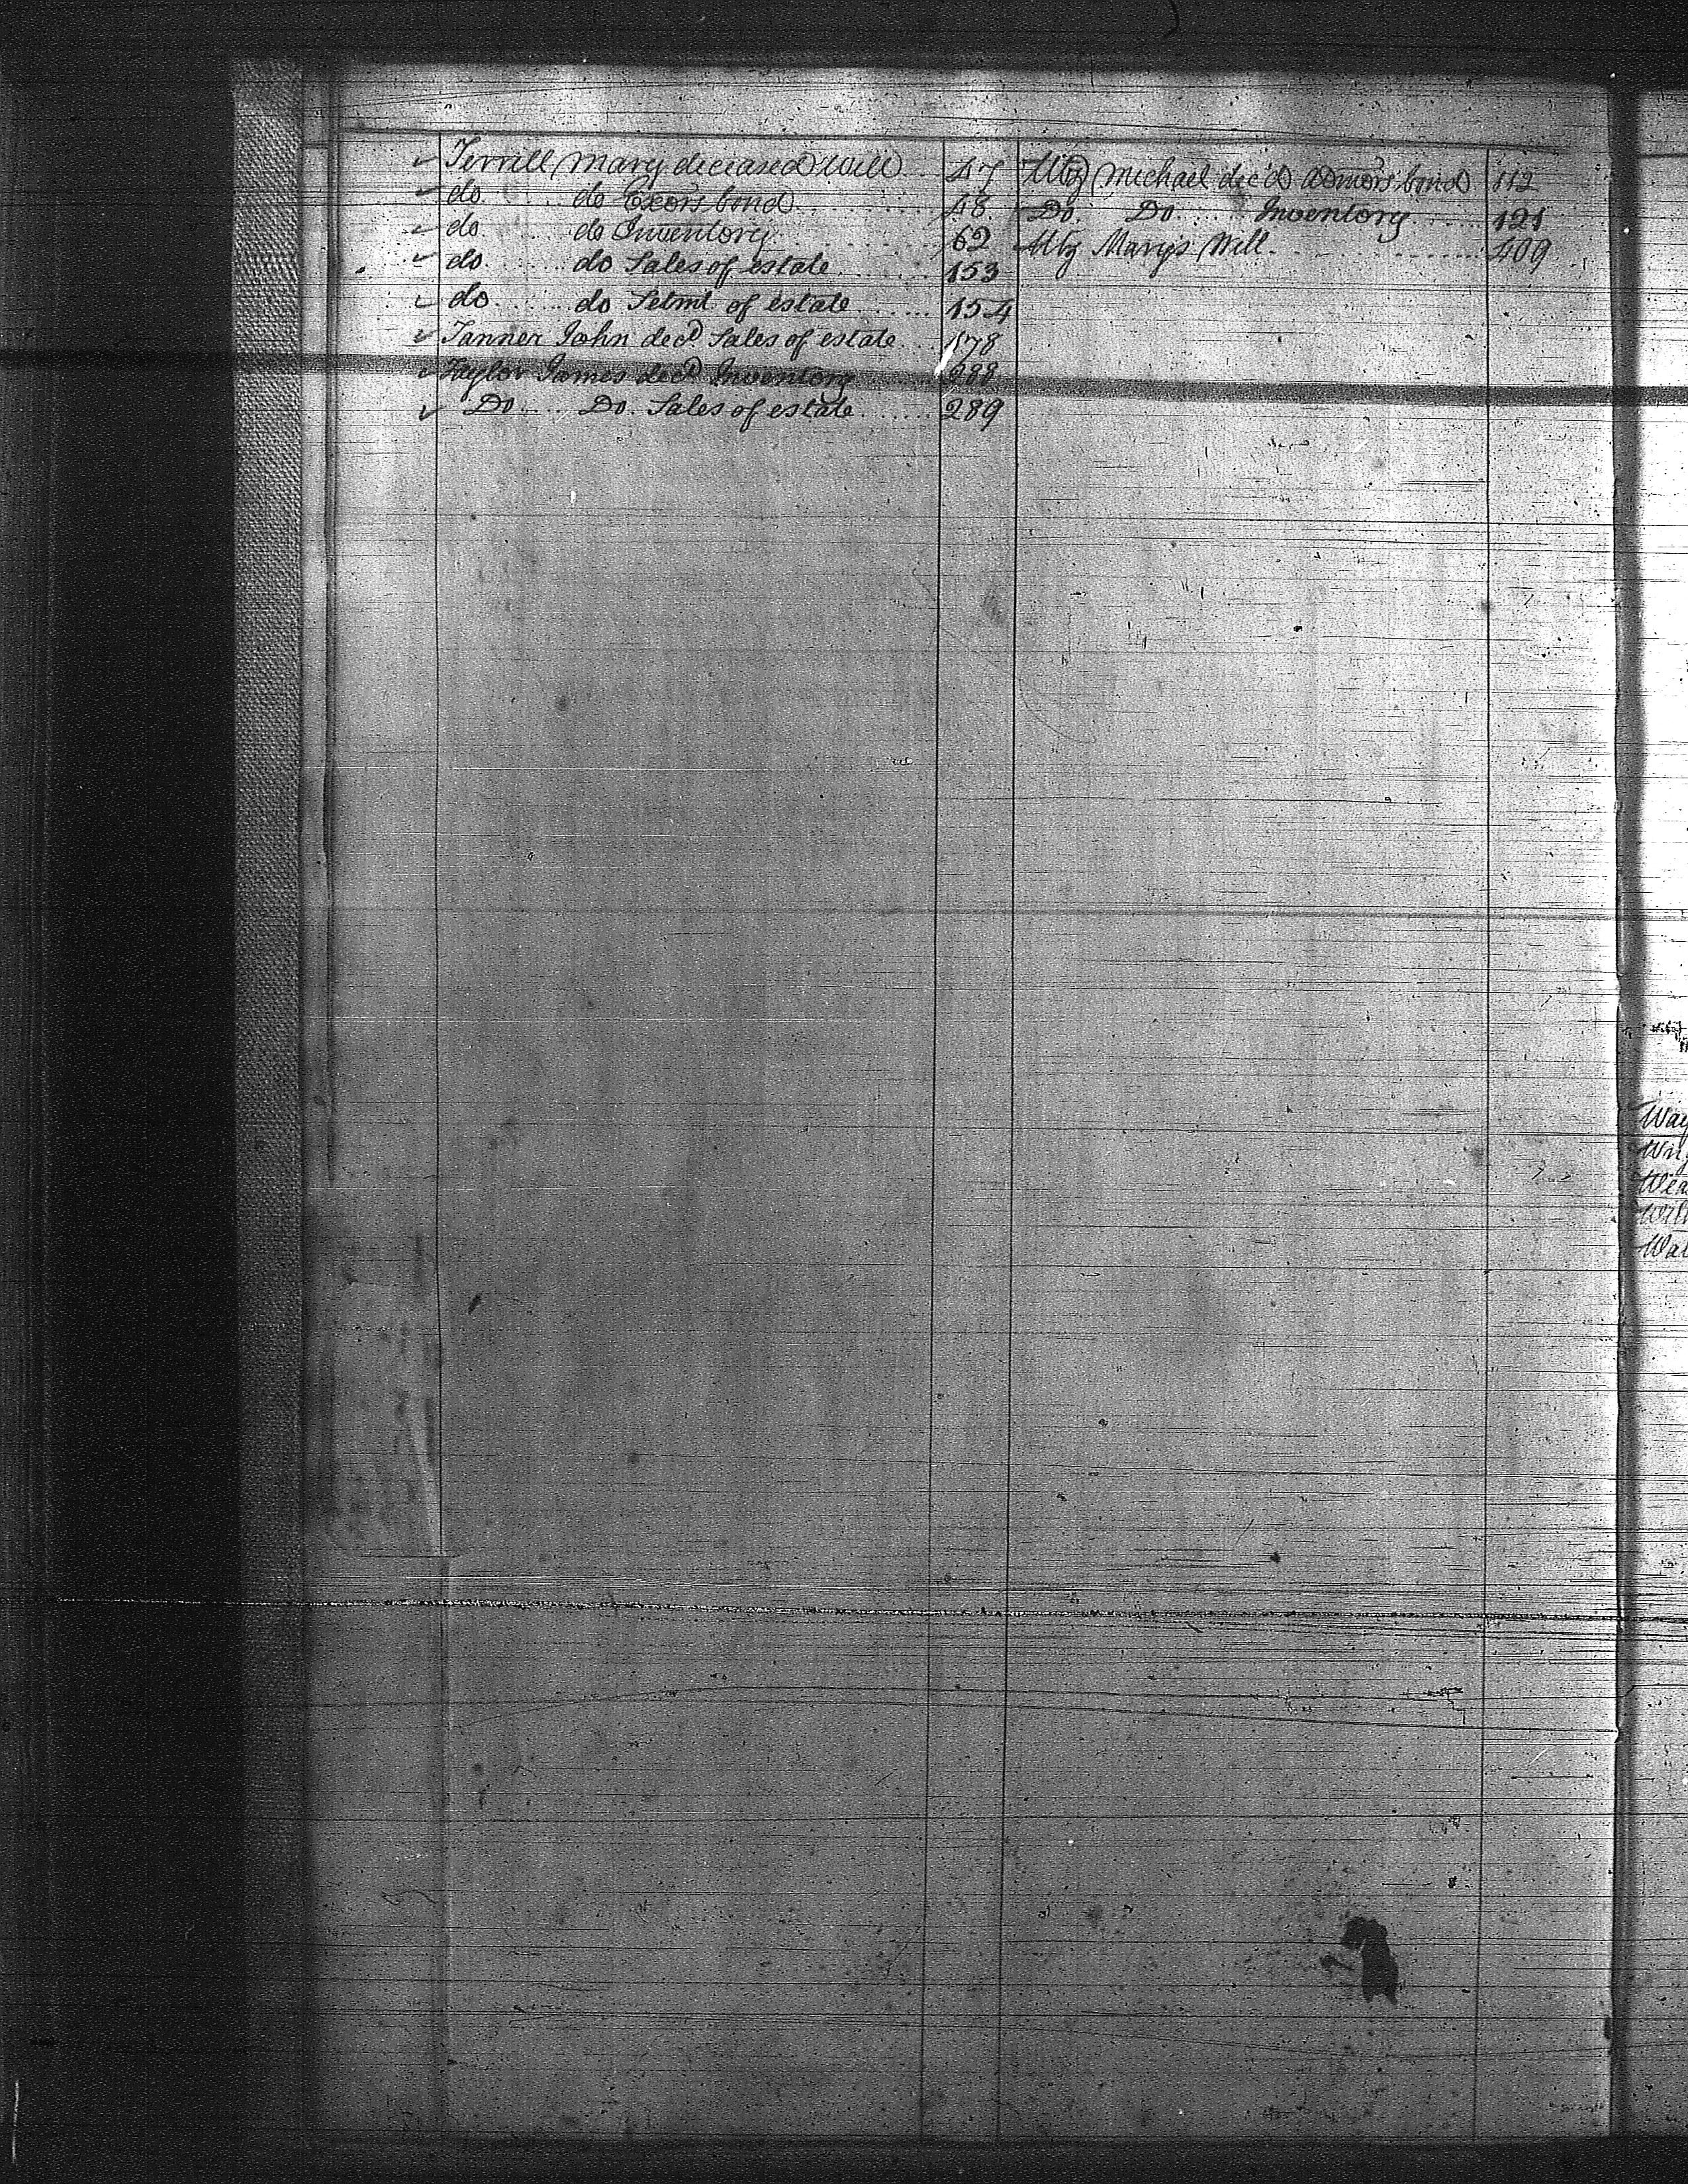 ✓ Terrill Mary deceased Will 47
✓ do do Exors bond 48
✓ do do Inventory 62
✓ do do Sales of estate 153
✓ do do Setmt of estate 154
✓ Tanner John decd Sales of estate 178
✓ Taylor James decd Inventory 288
✓ Do Do Sales of estate 289
Utz Michael dec'd Admors bond 112
Do Do Inventory 121
Utz Mary's Will 409
Way